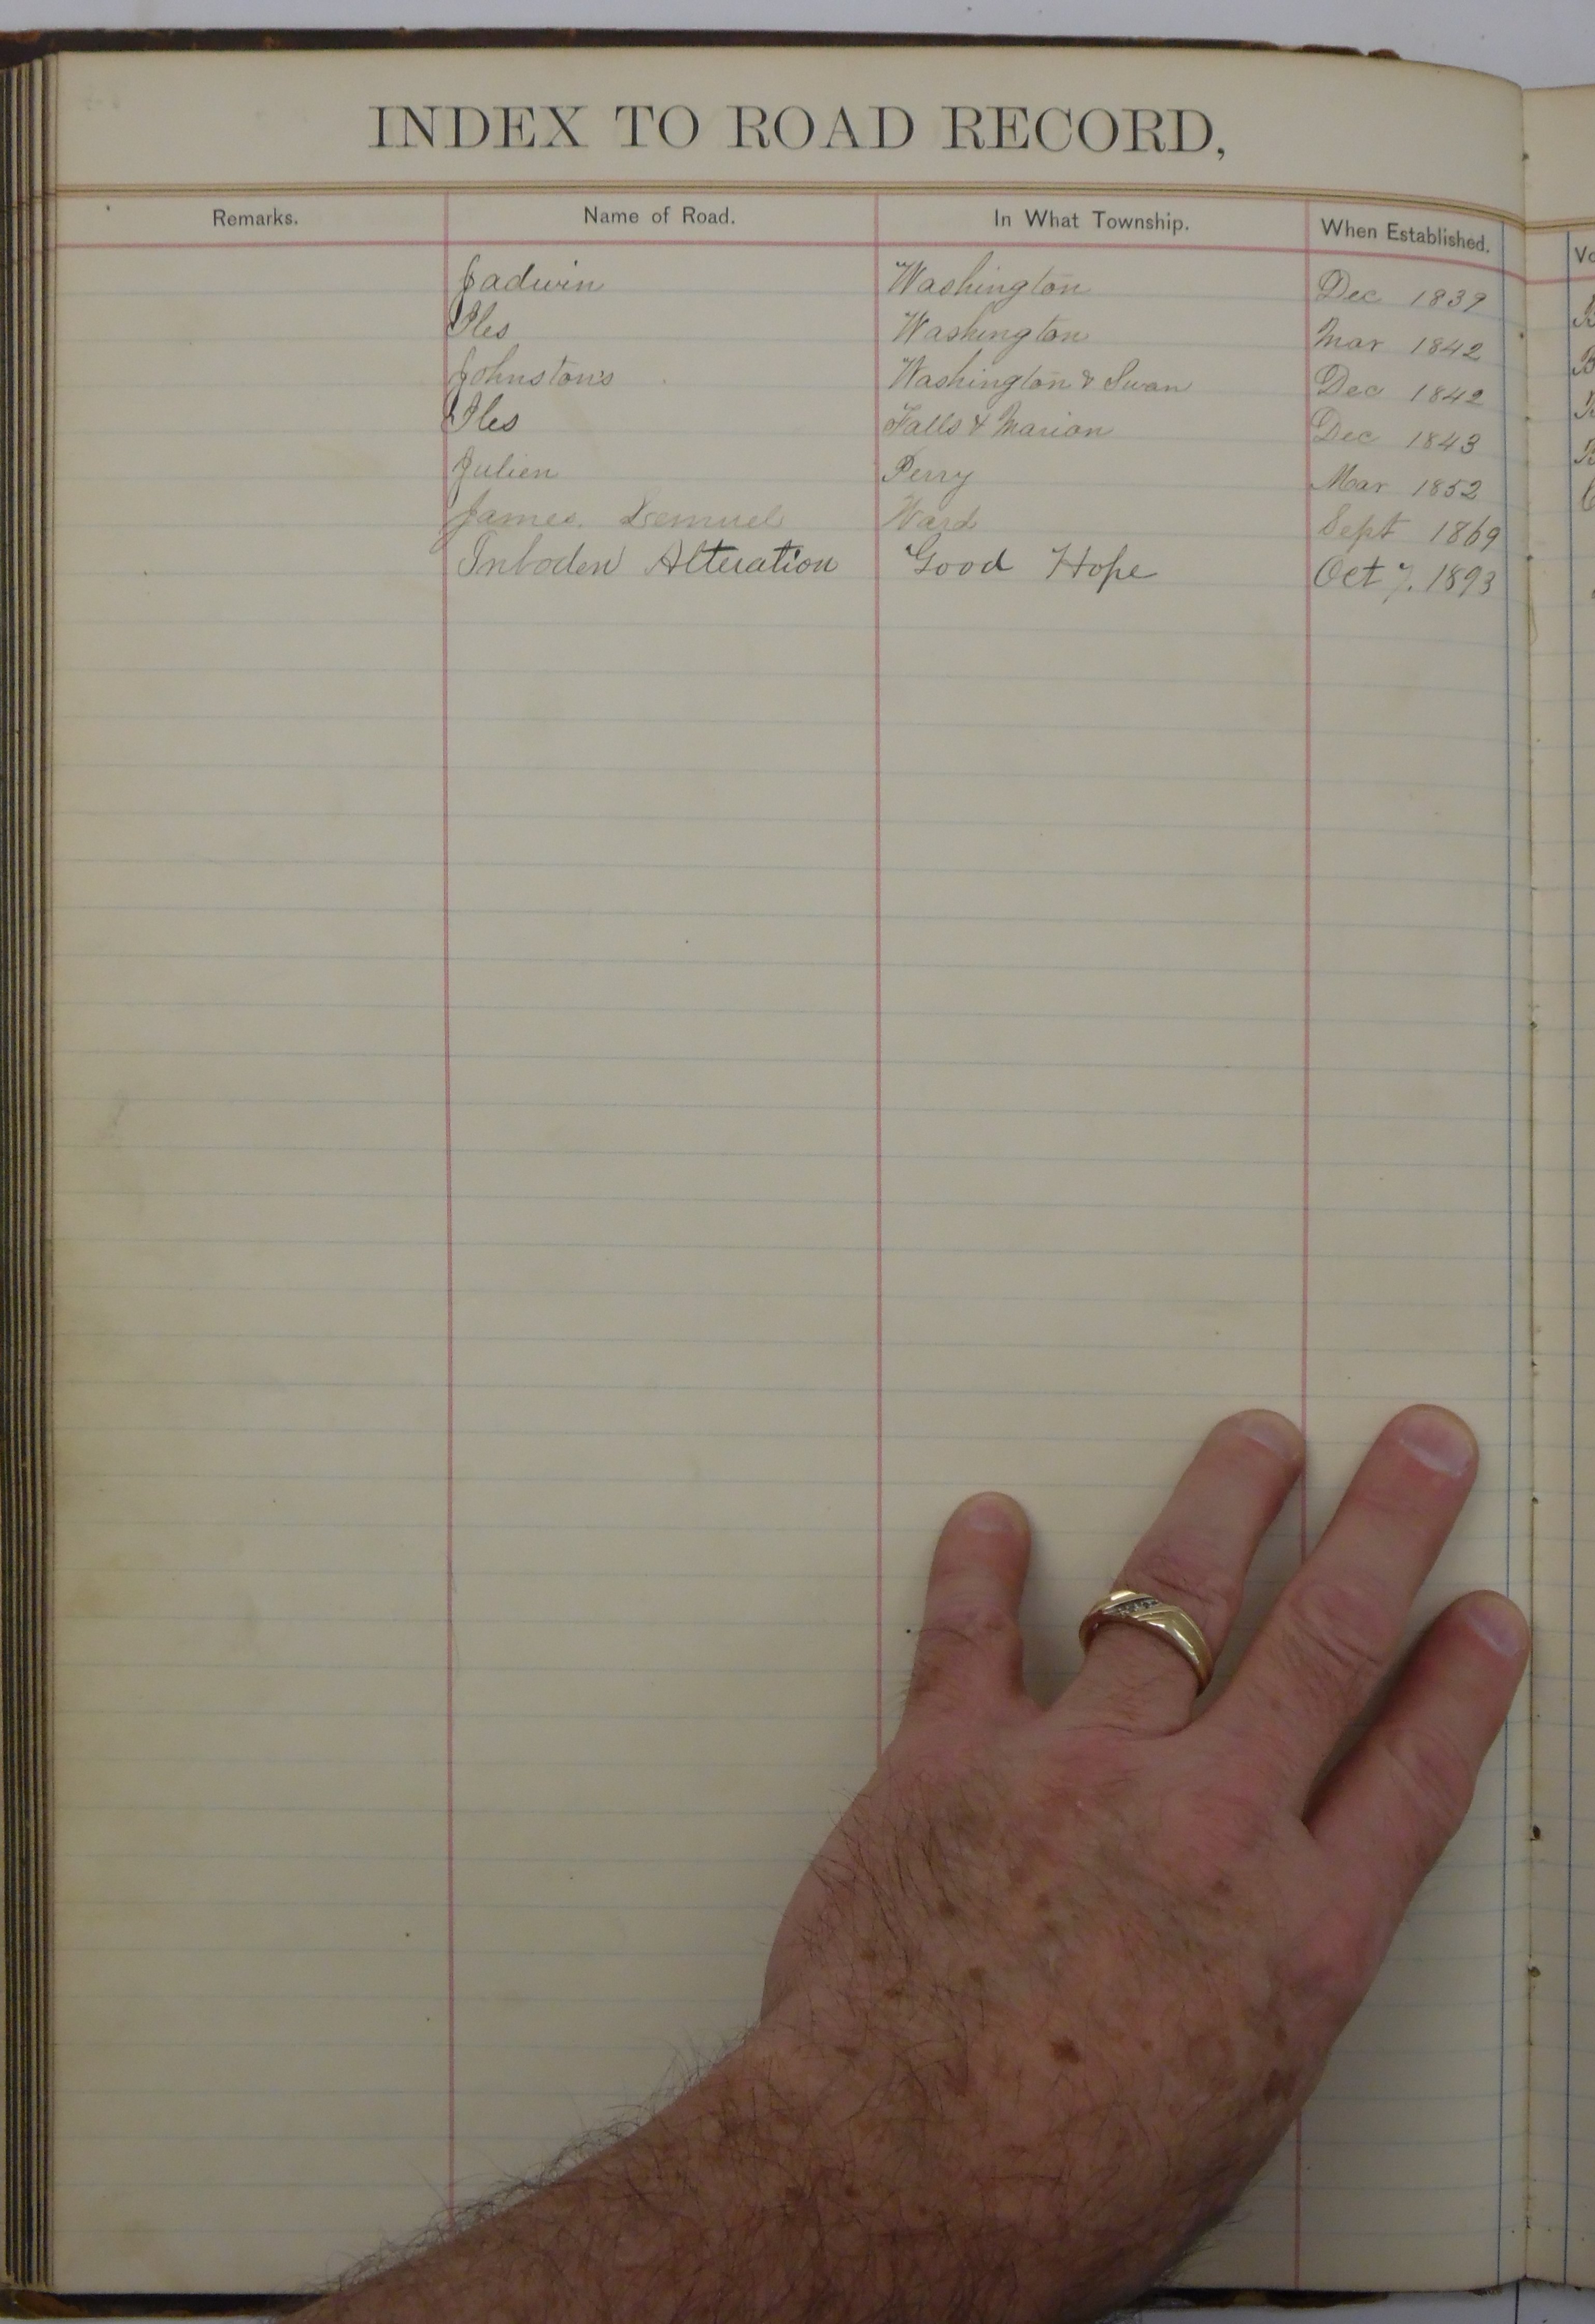 INDEX TO ROAD RECORD,
Remarks. Name of Road. In What Township. When Established.
Jadwin Washington Dec 1839
Iles Washington Mar 1842
Johnston's Washington & Swan Dec 1842
Iles Falls & Marion Dec 1843
Julien Perry Mar 1852
James, Lemuel Ward Sept 1869
Inboden Alteration Good Hope Oct 7. 1893